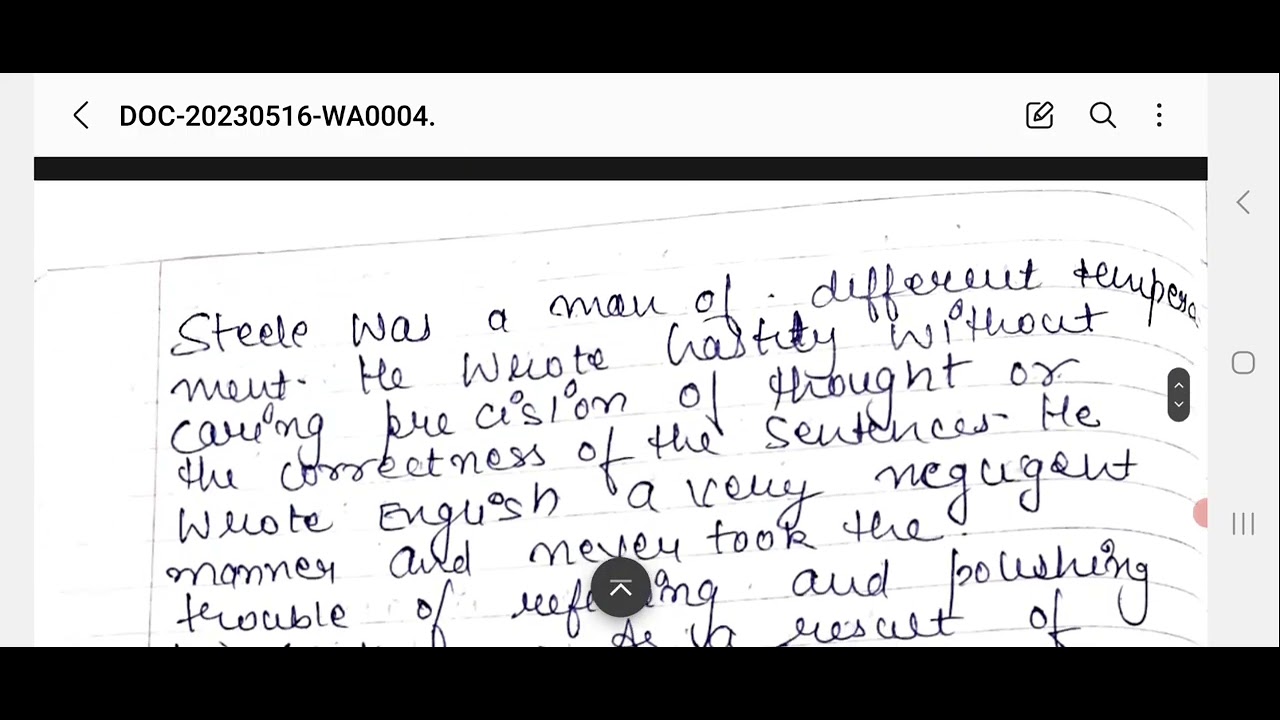 DOC-20230516-WA0004.
Steele was a man of different tempera
ment. He wrote hastity without
caring precision of thought or
the correctness of the sentences. He
wrote English a very negligent
manner and never took the
trouble of and polishing
As a result of